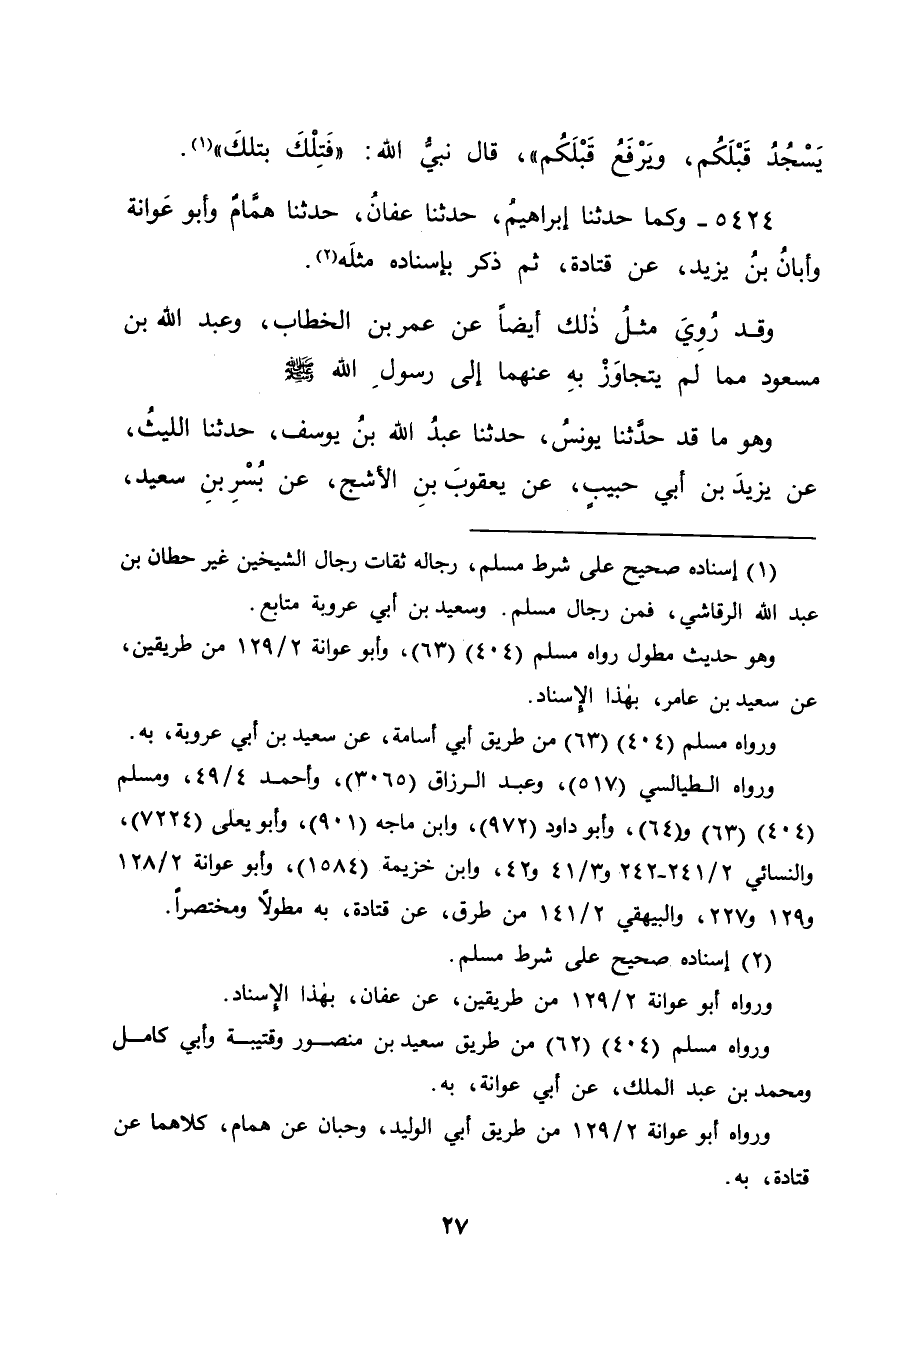 يَسْجُدُ قَبْلَكُم، ويَرْفَعُ قَبْلَكُم»، قال نبيُّ الله: «فَتِلْكَ بتلكَ»(١).
٥٤٢٤ ـ وكما حدثنا إبراهيمُ، حدثنا عفانُ، حدثنا همَّامٌ وأبو عَوانة
وأبانُ بنُ يزيد، عن قتادة، ثم ذكر بإسناده مثلَه(٢).
وقد رُوِيَ مثلُ ذٰلك أيضاً عن عمر بن الخطاب، وعبد الله بن
مسعود مما لم يتجاوَزْ بهِ عنهما إلى رسولِ الله ﷺ
وهو ما قد حدَّثنا يونسُ، حدثنا عبدُ الله بنُ يوسف، حدثنا الليثُ،
عن يزيدَ بن أبي حبيبٍ، عن يعقوبَ بنِ الأشج، عن بُسْرِ بنِ سعيد،
(١) إسناده صحيح على شرط مسلم، رجاله ثقات رجال الشيخين غير حطان بن
عبد الله الرقاشي، فمن رجال مسلم. وسعيد بن أبي عروبة متابع.
وهو حديث مطول رواه مسلم (٤٠٤) (٦٣)، وأبو عوانة ١٢٩/٢ من طريقين،
عن سعيد بن عامر، بهٰذا الإسناد.
ورواه مسلم (٤٠٤) (٦٣) من طريق أبي أسامة، عن سعيد بن أبي عروبة، به.
ورواه الطيالسي (٥١٧)، وعبد الرزاق (٣٠٦٥)، وأحمد ٤٩/٤، ومسلم
(٤٠٤) (٦٣) و(٦٤)، وأبو داود (٩٧٢)، وابن ماجه (٩٠١)، وأبو يعلى (٧٢٢٤)،
والنسائي ٢٤١/٢-٢٤٢ و٤١/٣ و٤٢، وابن خزيمة (١٥٨٤)، وأبو عوانة ١٢٨/٢
و١٢٩ و٢٢٧، والبيهقي ١٤١/٢ من طرق، عن قتادة، به مطولاً ومختصراً.
(٢) إسناده صحيح على شرط مسلم.
ورواه أبو عوانة ١٢٩/٢ من طريقين، عن عفان، بهٰذا الإسناد.
ورواه مسلم (٤٠٤) (٦٢) من طريق سعيد بن منصور وقتيبة وأبي كامل
ومحمد بن عبد الملك، عن أبي عوانة، به.
ورواه أبو عوانة ١٢٩/٢ من طريق أبي الوليد، وحبان عن همام، كلاهما عن
قتادة، به.
٢٧